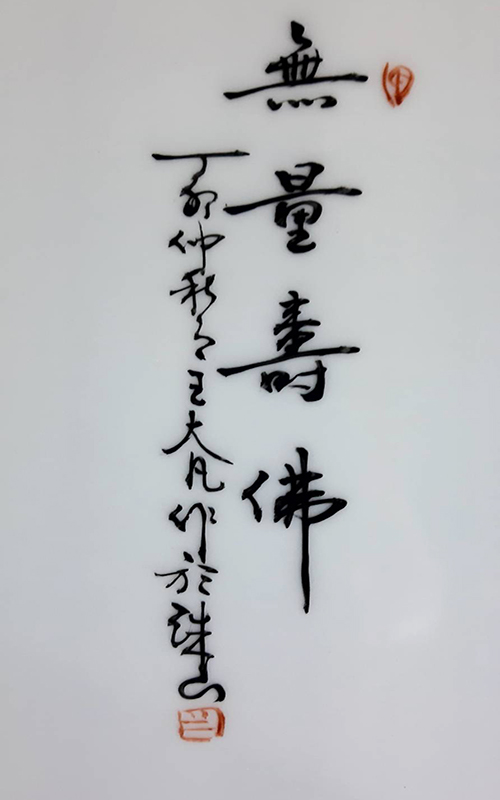 無量壽佛
丁卯仲秋王大凡作於珠山